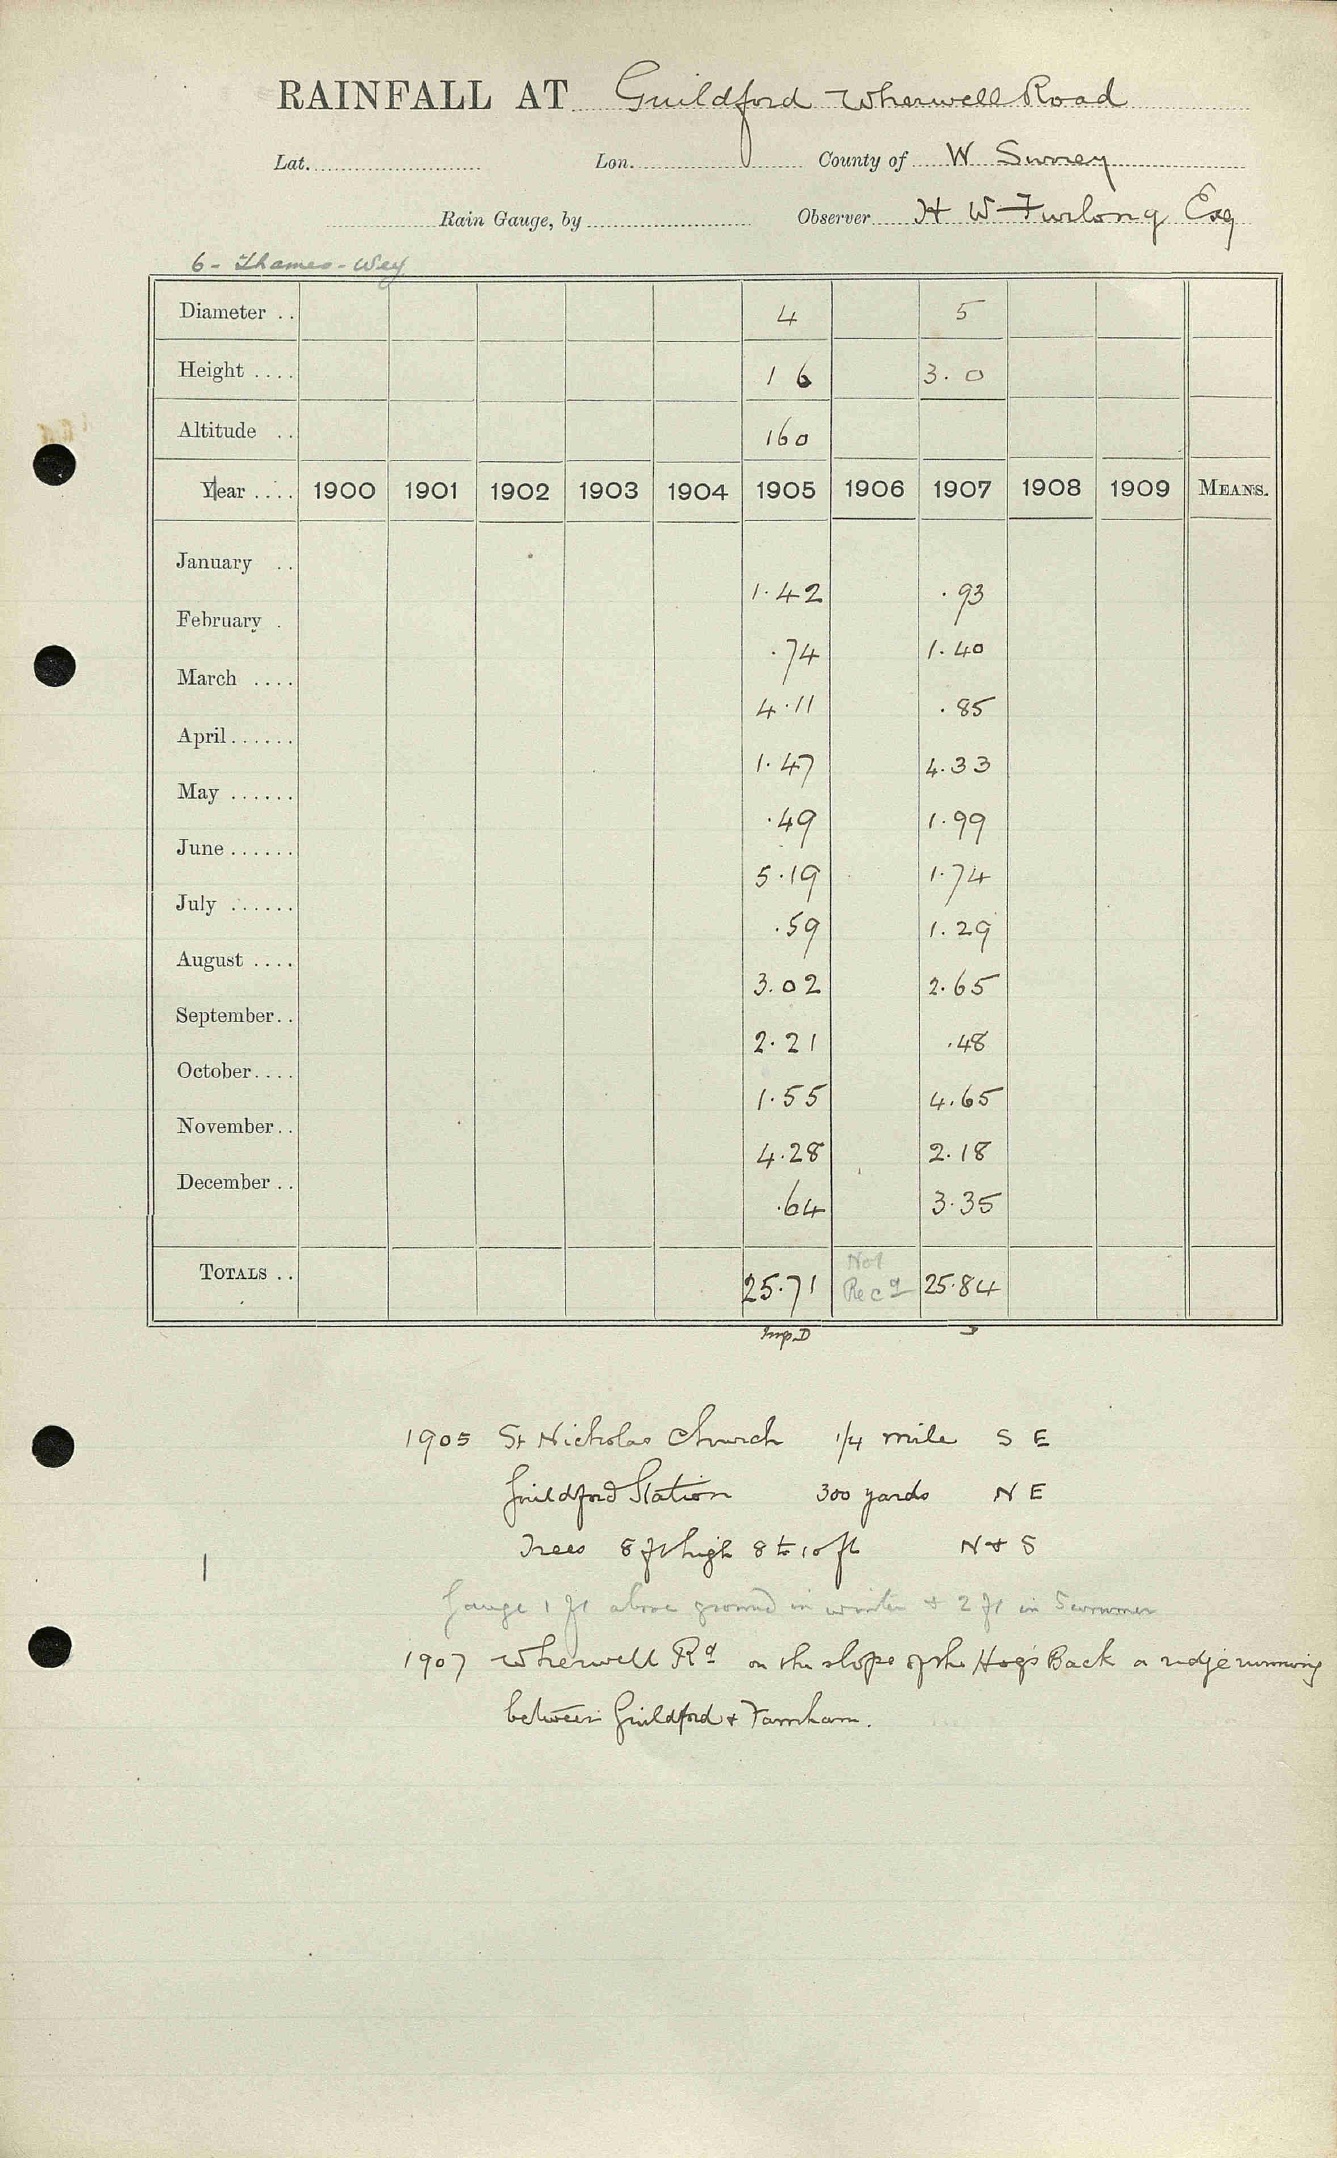 RAINFALL AT Guildford Wherwell Road
Lat. Lon. County of W Surrey
Rain Gauge, by Observer H W Furlong Esq
6 - Thames - Wey
Diameter .. 4 5
Height .... 1 6 3. 0
Altitude .. 160
Year .... 1900 1901 1902 1903 1904 1905 1906 1907 1908 1909 MEANS.
January .. 1.42 .93
February . .74 1.40
March .... 4.11 .85
April...... 1.47 4.33
May ...... .49 1.99
June ...... 5.19 1.74
July ...... .59 1.29
August .... 3.02 2.65
September.. 2.21 .48
October.... 1.55 4.65
November.. 4.28 2.18
December .. .64 3.35
TOTALS .. 25.71 Not Recd 25.84
Imp.D
1905 St Nicholas Church 1/4 mile S E
Guildford Station 300 yards N E
Trees 8 ft high 8 to 10 ft N & S
Gauge 1 ft above ground in winter & 2 ft in Summer
1907 Wherwell Rd on the slope of the Hog's Back a ridge running
between Guildford & Farnham.